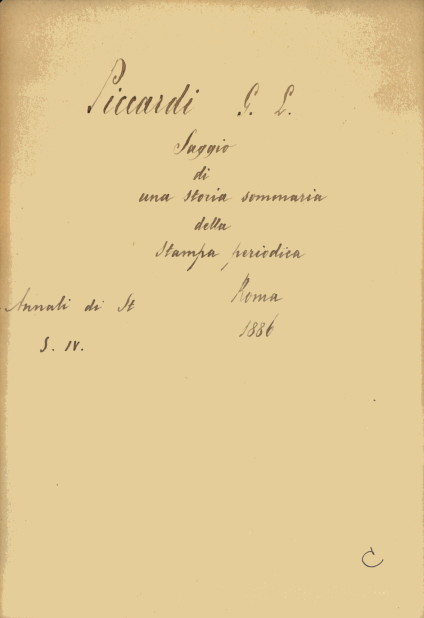 Piccardi G. L.
Saggio
di
una storia sommaria
della
Stampa periodica
Roma
1886
Annali di St
S. IV.
C